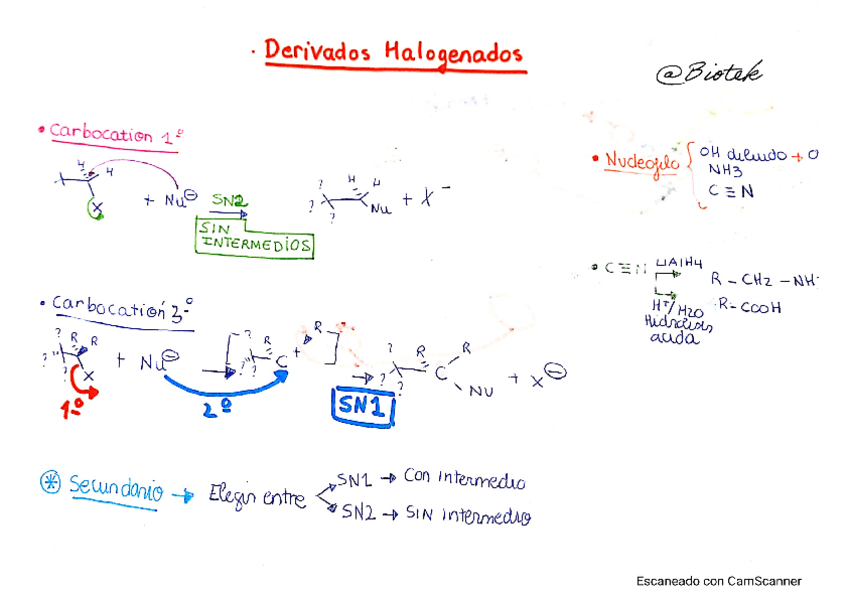 · Derivados Halogenados
@Biotek
• Carbocation 1º
H H
X
+ Nu⊖
SN2
SIN
INTERMEDIOS
? ? ?
H H
Nu
+ X⁻
• Nucleofilo
OH diluido + O
NH3
C≡N
• C≡N
LiAlH4
R - CH2 - NH
H+/H2O
Hidrólisis
acida
R - COOH
• Carbocation 3º
? R R
?" ?
X
+ Nu⊖
1º
2º
? R
?" ?
C +
SN1
? R R
? ?
C
NU
+ X⊖
* Secundario → Elegir entre
SN1 → Con intermedio
SN2 → SIN intermedio
Escaneado con CamScanner